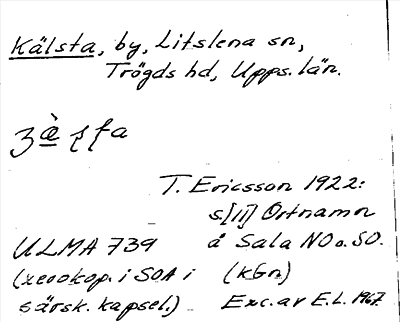 Kälsta, by, Litslena sn,
Trögds hd, Upps. län.
T. Ericsson 1922:
s[11] Ortnamn
ULMA 739 å Sala NO o. SO.
(xerokop. i SOA i (KGn)
särsk. kapsel.) Exc. av E.L. 1967.